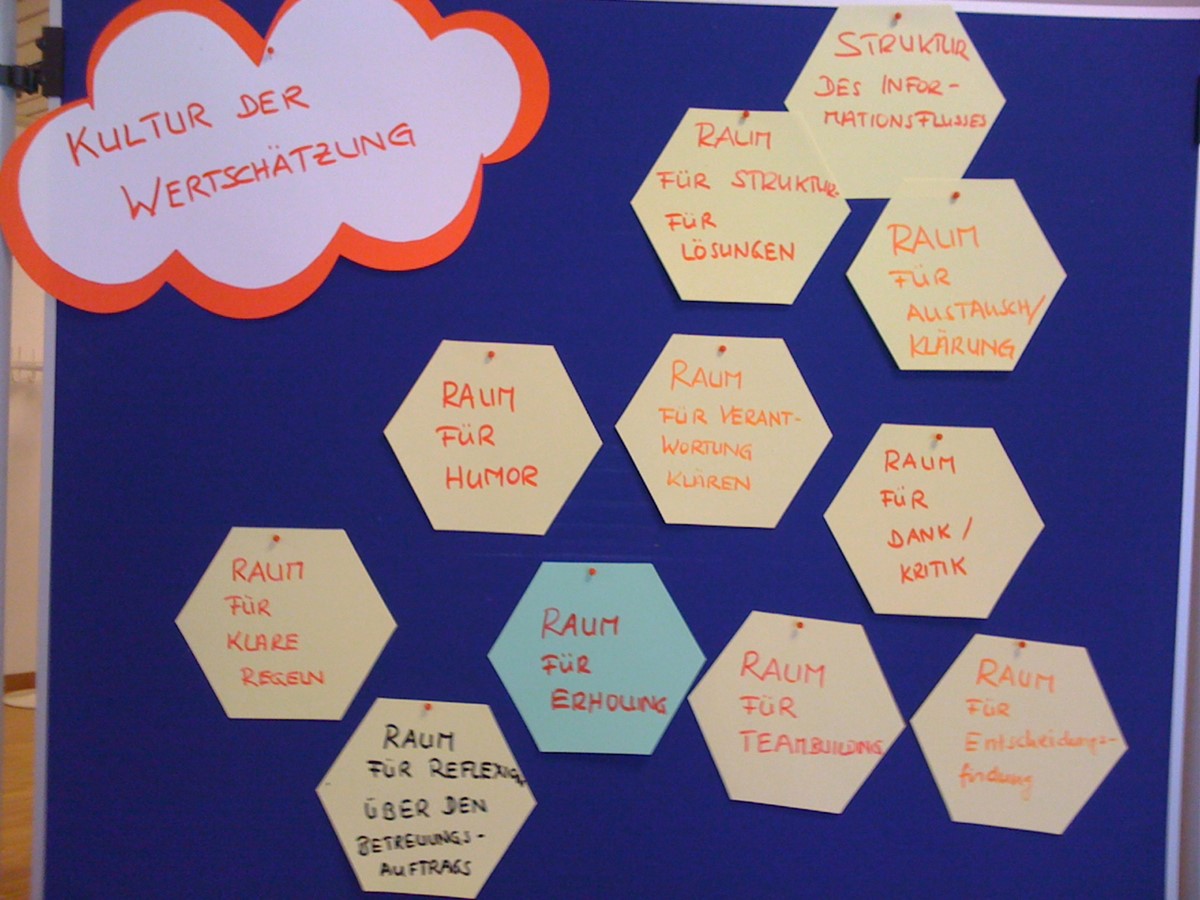 KULTUR DER
WERTSCHÄTZUNG
STRUKTUR
DES INFOR-
MATIONSFLUSSES
RAUM
FÜR STRUKTUR
FÜR
LÖSUNGEN
RAUM
FÜR
AUSTAUSCH/
KLÄRUNG
RAUM
FÜR
HUMOR
RAUM
FÜR VERANT-
WORTUNG
KLÄREN
RAUM
FÜR
DANK/
KRITIK
RAUM
FÜR
KLARE
REGELN
RAUM
FÜR
ERHOLUNG
RAUM
FÜR
TEAMBUILDING
RAUM
FÜR
Entscheidungs-
findung
RAUM
FÜR REFLEXION
ÜBER DEN
BETREUUNGS-
AUFTRAGS